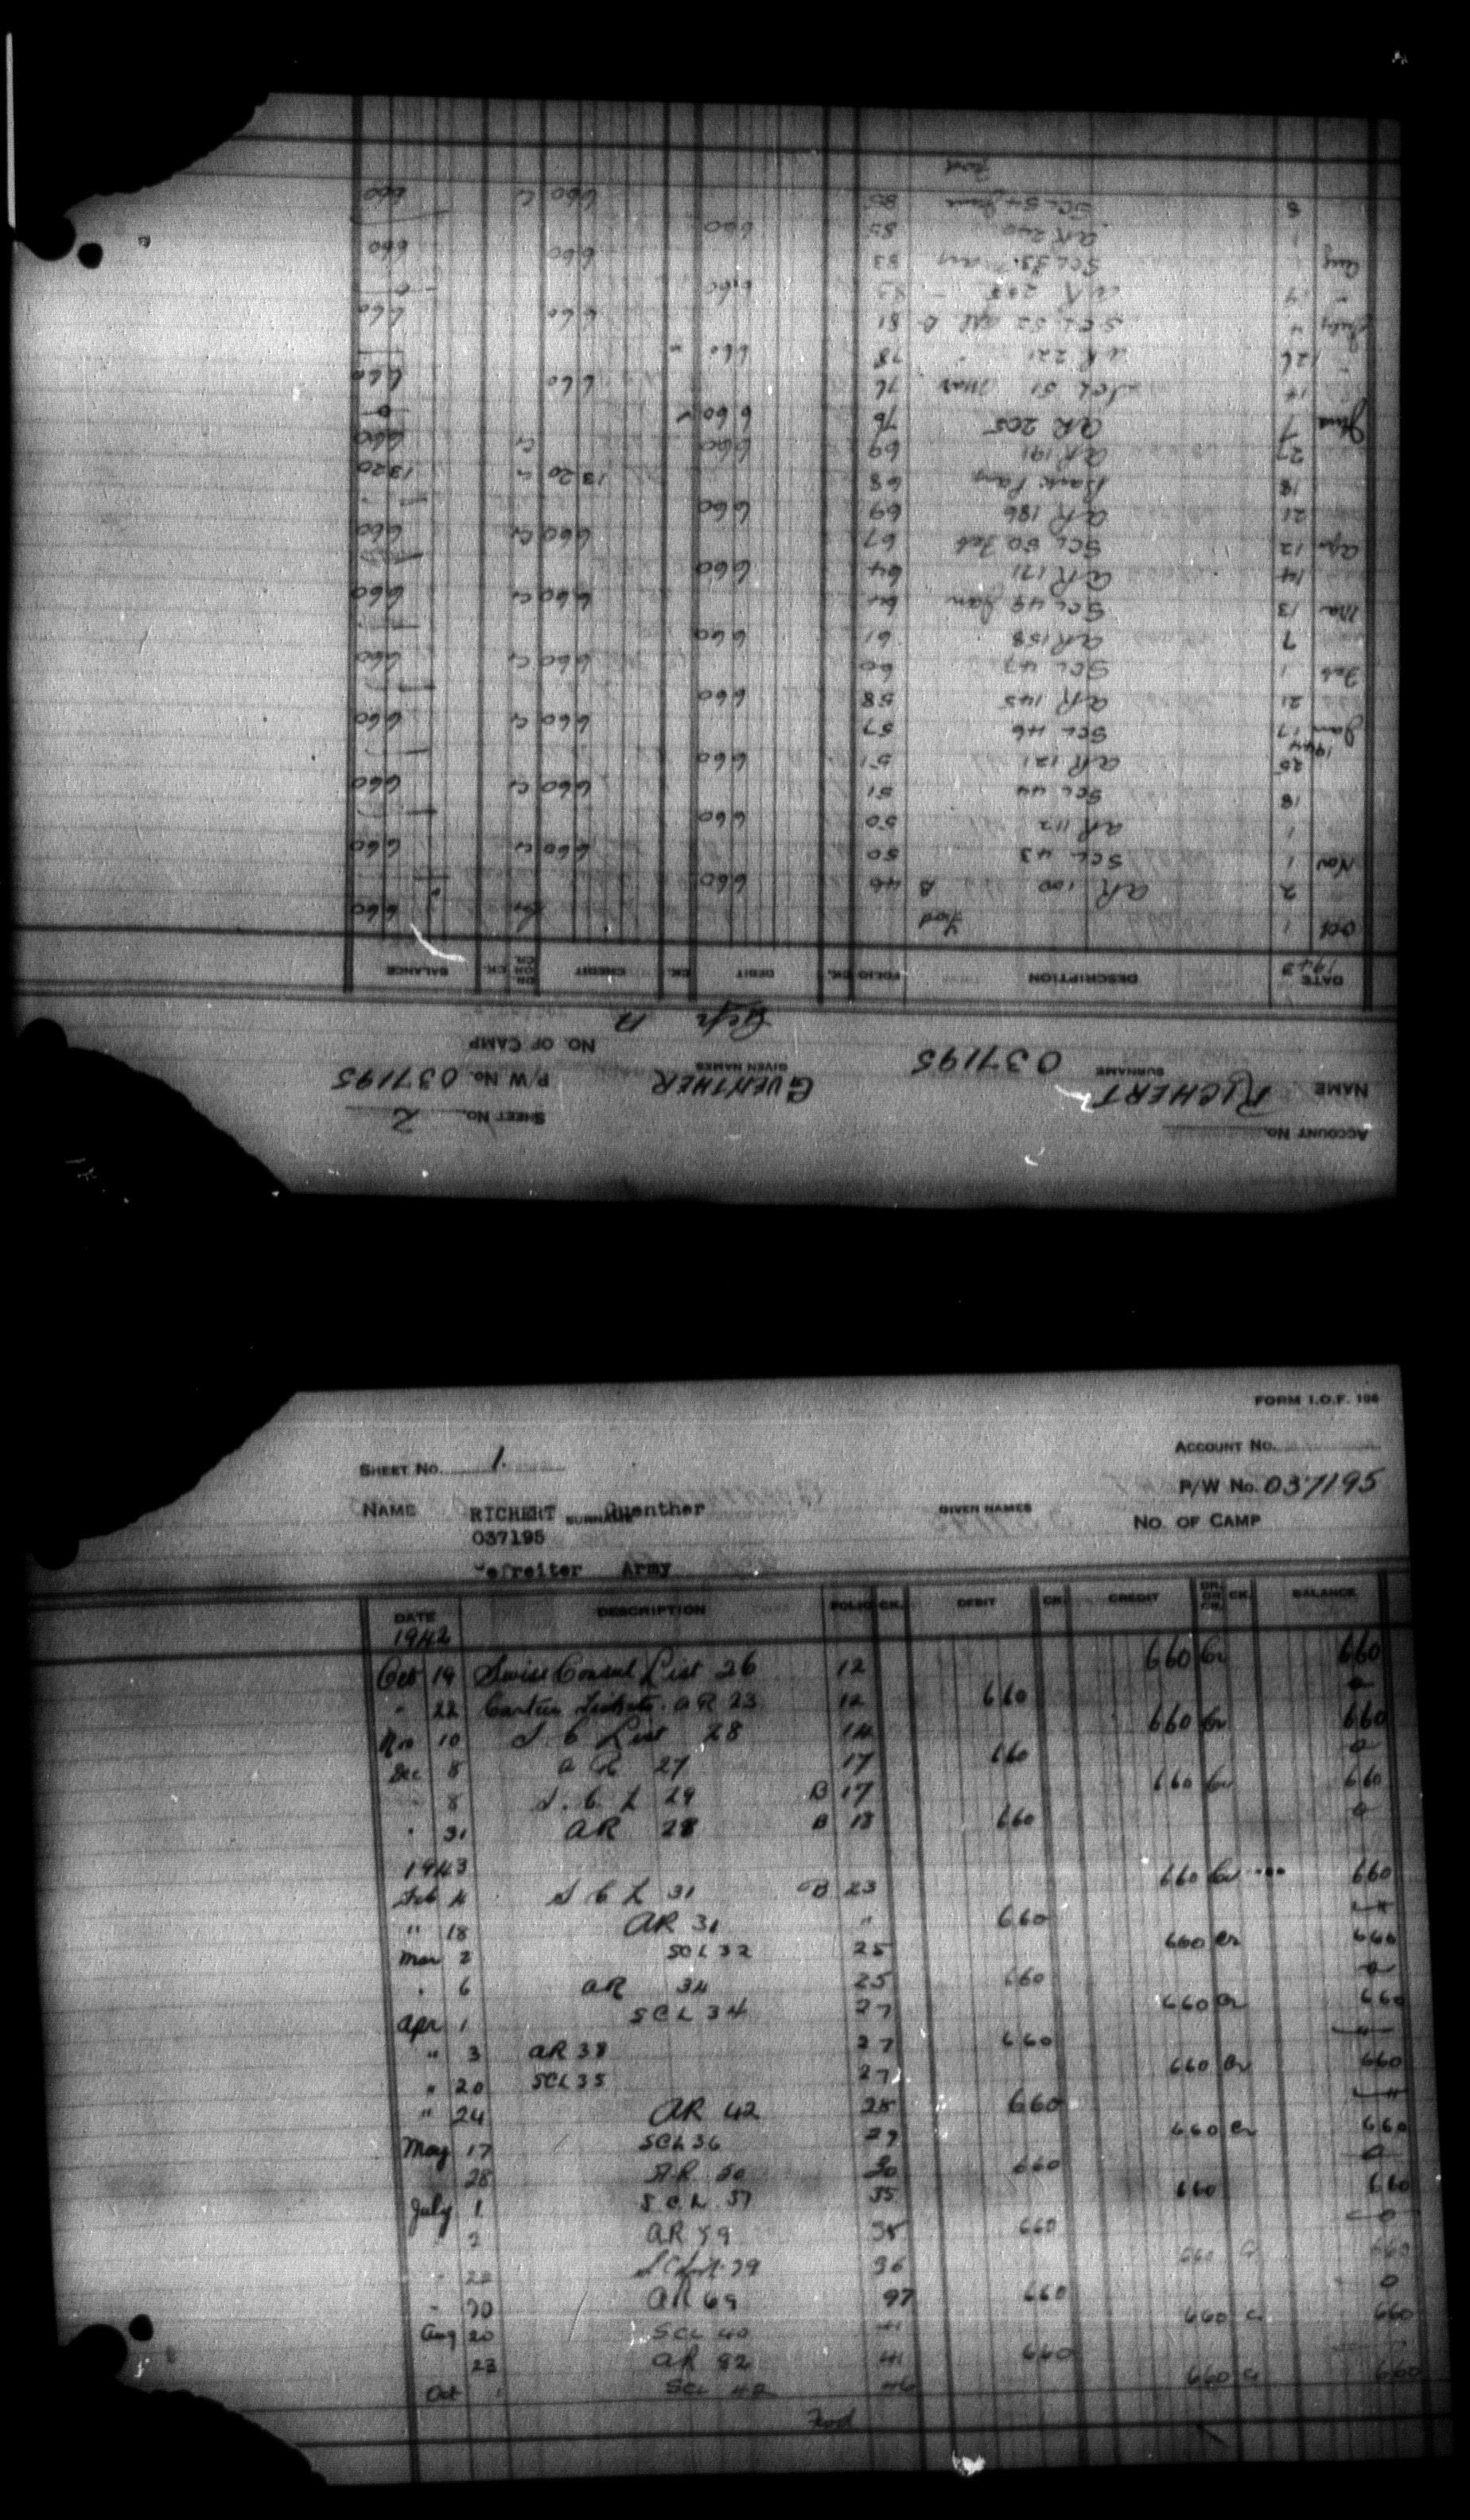 ACCOUNT No.
SHEET No. 2
NAME RICHERT SURNAME 037195 GUENTHER GIVEN NAMES P/W No. 037195
Gefr A NO. OF CAMP
DATE DESCRIPTION FOLIO CK. DEBIT CK. CREDIT DR. OR CR. CK. BALANCE
1943
Oct 1 Fwd 660
2 AR 100 B 46 660
Nov 1 SCL 43 50 660 Cr 660
1 AR 112 50 660
18 SCL 44 51 660 Cr 660
25 AR 121 51 660
1944
Jan 17 SCL 46 57 660 Cr 660
21 AR 145 58 660
Feb 1 SCL 47 60 660 Cr 660
7 AR 158 61 660
Mar 13 SCL 49 Jan 64 660 Cr 660
14 AR 171 64 660
Apr 12 SCL 50 Feb 67 660 Cr 660
21 AR 186 69 660
18 Back Pay 68 13 20 Cr 13 20
27 AR 191 69 660 Cr 660
June 7 AR 205 76 660 0
14 SCL 51 Mar 76 660 660
26 AR 221 78 660
July 4 SCL 52 Apl B 81 660 660
14 AR 83 660
Aug 1 SCL 53 May 83 660 660
1 AR 240 85 660
8 SCL 54 June 85 660 Cr 660
Fwd
FORM I.O.F. 106
SHEET No. 1. ACCOUNT No.
P/W No. 037195
NAME RICHERT SURNAME Guenther GIVEN NAMES NO. OF CAMP
037195
efreiter Army
DATE DESCRIPTION FOLIO CK. DEBIT CK. CREDIT DR. OR CR. CK. BALANCE
1942
Oct 19 Swiss Consul List 26 12 660 Cr 660
" 22 Canteen Tickets. AR 23 12 660 0
Nov 10 S. C List 28 14 660 Cr 660
Dec 8 AR 27 17 660 0
" 8 S. C. L 29 B 17 660 Cr 660
" 31 AR 28 B 18 660 0
1943
Feb 4 S C L 31 B 23 660 Cr 660
" 18 AR 31 " 660
Mar 2 SCL 32 25 660 Cr 660
" 6 AR 34 25 660 0
Apr 1 SCL 34 27 660 Cr 660
" 3 AR 38 27 660
" 20 SCL 35 27 660 Cr 660
" 24 AR 42 28 660
May 17 SCL 36 29 660 Cr 660
28 AR 50 30 660 0
July 1 S.C.L. 37 35 660 660
2 AR 59 35 660 0
36 660 Cr 660
30 AR 69 660 0
Aug 20 SCL 40 41 660 Cr 660
23 AR 82 41 660
Oct 1 SCL 42 46 660 Cr 660
Fwd